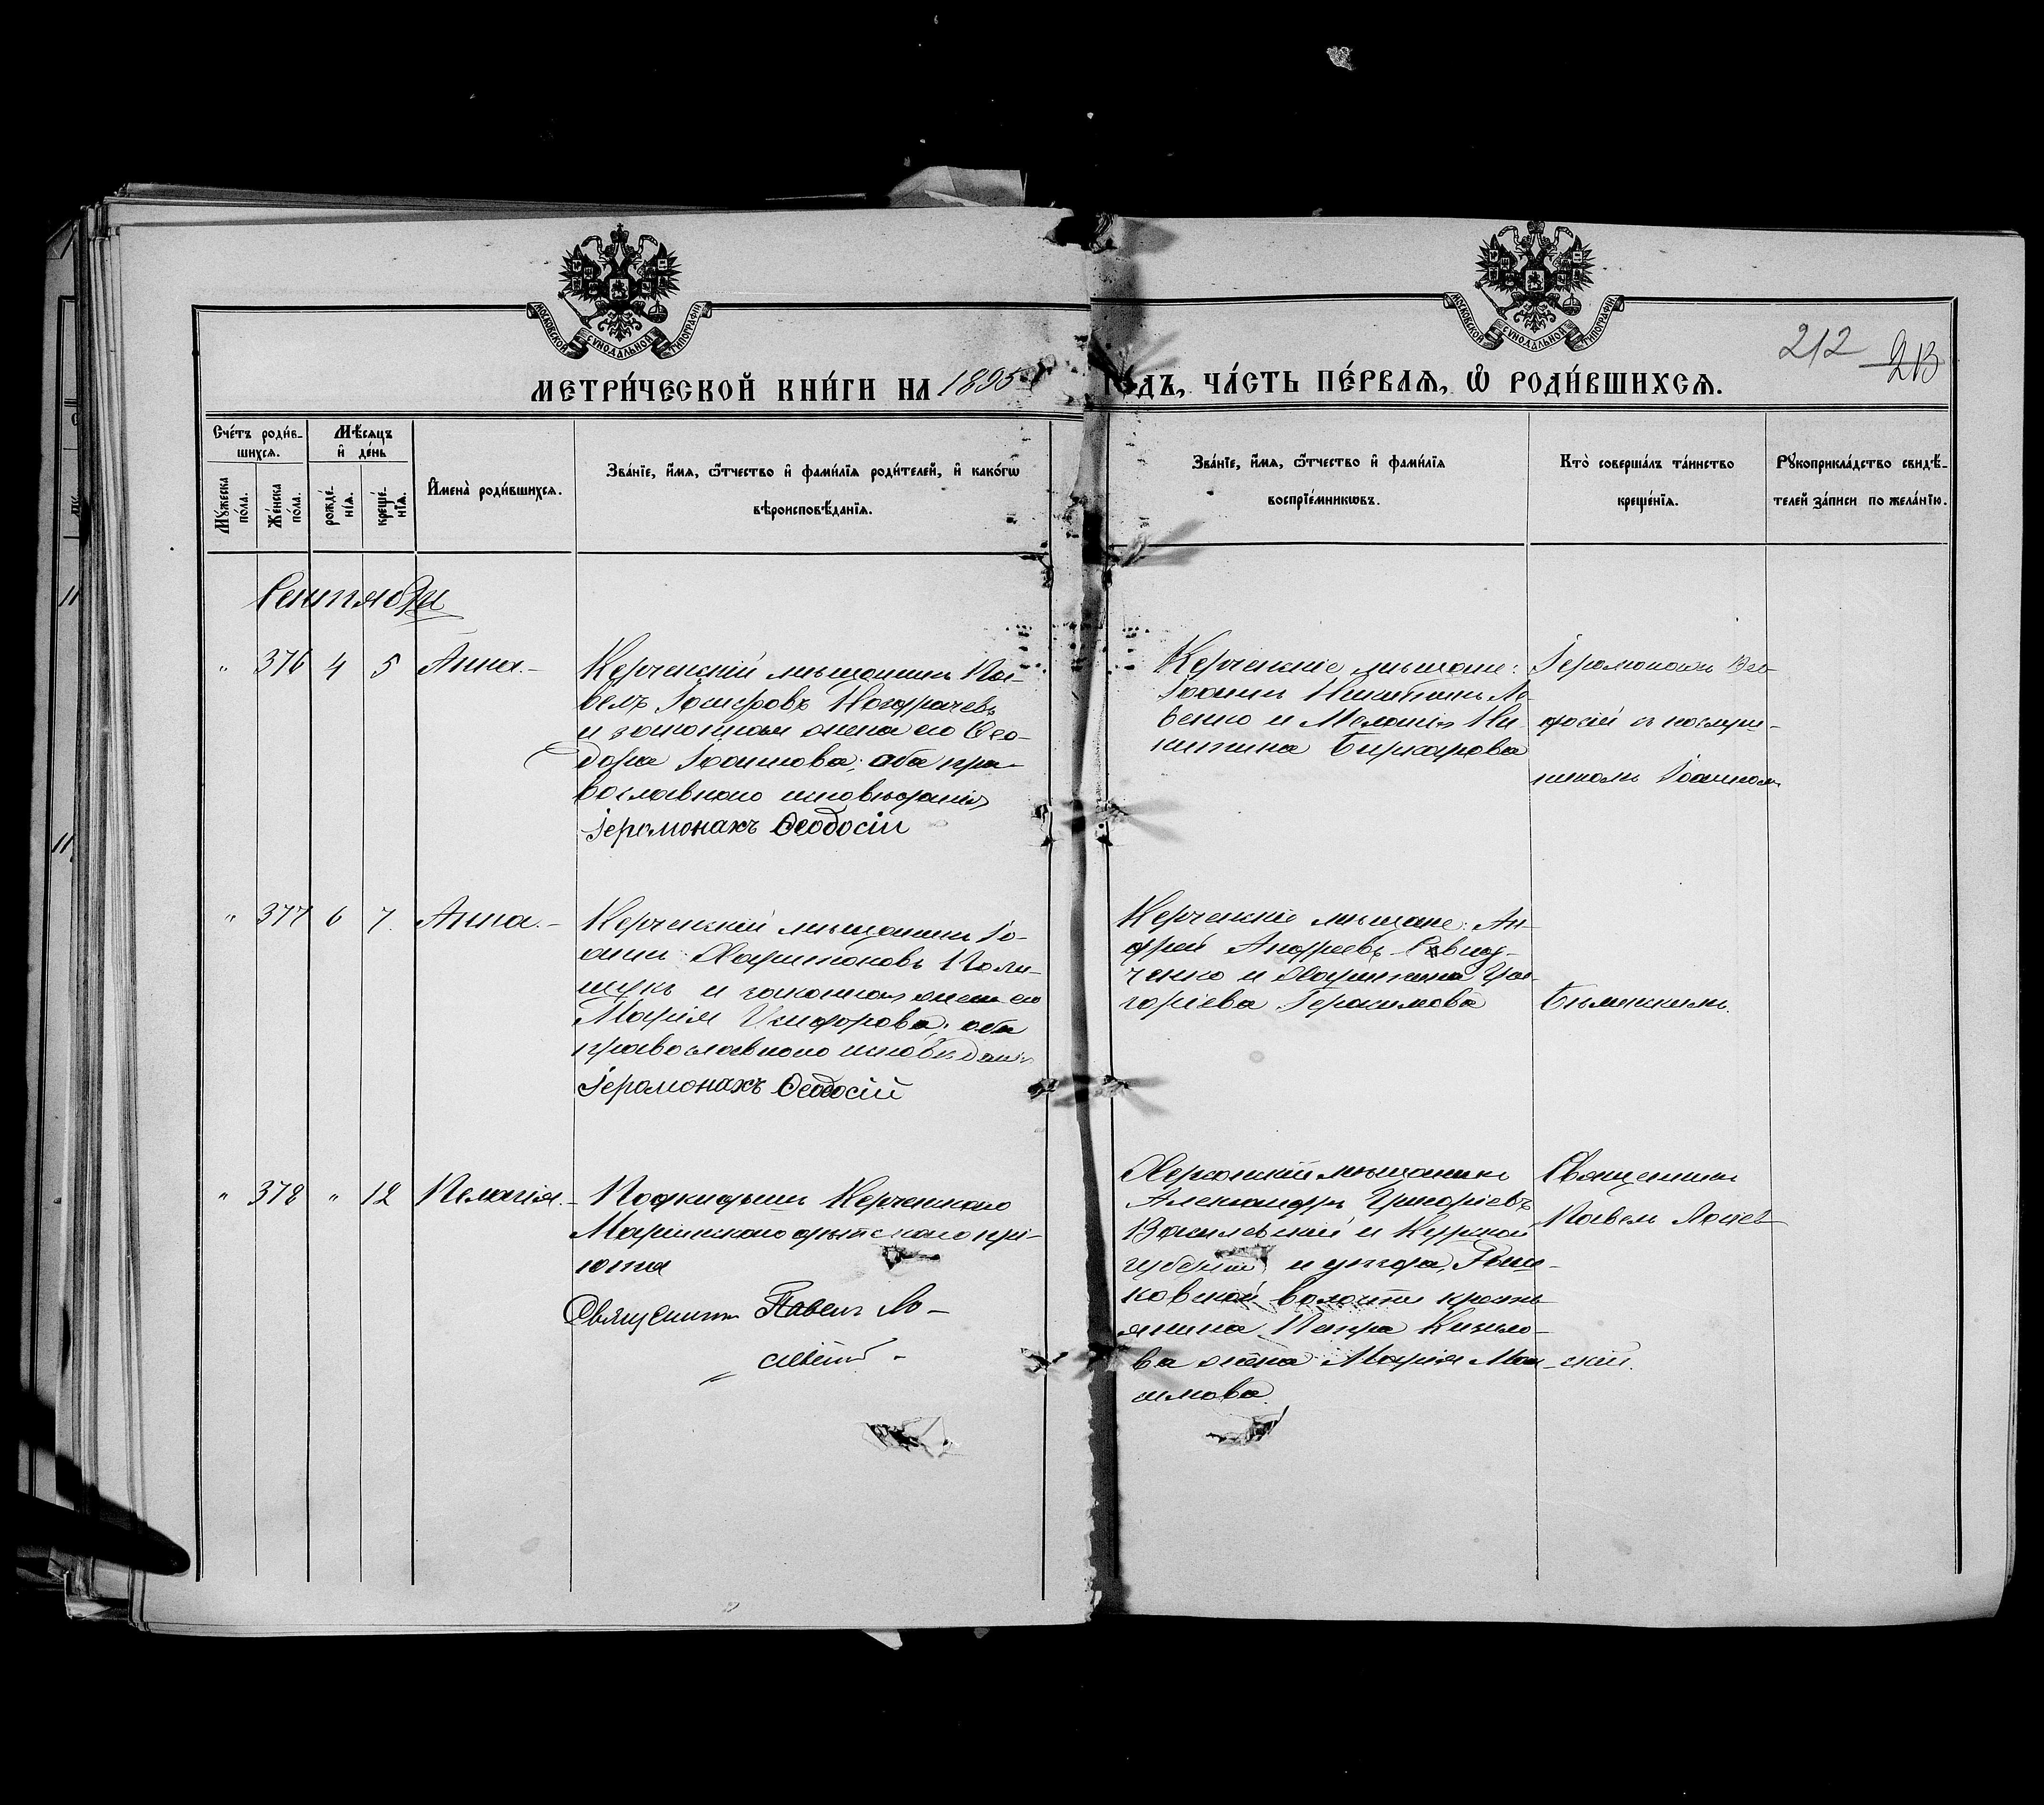 МОСКОВСКОЙ СѴНОДАЛЬНОЙ ТИПОГРАФІИ
МОСКОВСКОЙ СѴНОДАЛЬНОЙ ТИПОГРАФІИ
212 213
МЕТРИ́ЧЕСКОЙ КНИ́ГИ НА 1895 ГОДЪ, ЧА́СТЬ ПЕ́РВАѦ, Ѡ҆ РОДИ́ВШИХСѦ.
Сче́тъ роди́в-
шихсѧ.
Мꙋ́жеска по́ла.
Же́нска по́ла.
Мѣ́сѧцъ
и҆ де́нь
рожде́-
нїѧ.
креще́-
нїѧ.
И҆мена̀ роди́вшихсѧ.
Зва́нїе, и҆́мѧ, ѻ҆́тчество и҆ фами́лїѧ роди́телей, и҆ како́гѡ
вѣроисповѣ́данїѧ.
Зва́нїе, и҆́мѧ, ѻ҆́тчество и҆ фами́лїѧ
воспрїе́мникѡвъ.
Кто̀ соверша́лъ та́инство
креще́нїѧ.
Рꙋкоприкла́дство свидѣ́-
телей за́писи по жела́нїю.
Сентябрь
" 376 4 5 Анна.-
Керченскій мѣщанинъ Па-
велъ
и законная жена его Ѳео-
дора Іоаннова; оба пра-
вославнаго исповѣданія
Іеромонахъ Ѳеодосій
Керченскіе мѣщане:
Іоаннъ Никитинъ Ле-
венко и Меланія Ни-
китина
Іеромонахъ Ѳео-
досій съ послуш-
никомъ Іоанномъ
" 377 6 7. Анна.-
Керченскій мѣщанинъ Іо-
аннъ Харитоновъ Поли-
щукъ и законная жена его
Марія оба
православнаго исповѣданія
Іеромонахъ Ѳеодосій
Керченскіе мѣщане: Ан-
дрей Андреевъ
ченко и Харитина Гри-
горіева Герасимова
" 378 " 12 Пелагія.-
Подкидышъ Керченскаго
Маріинскаго дѣтскаго прі-
юта
Священникъ Павелъ Ло-
Херсонскій мѣщанинъ
Александръ Григоріевъ
Василевскій и Курской
губерніи и уѣзда,
ковской волости кресть-
янина Петра Кизило-
ва жена Марія Мак-
симова.
Священникъ
Павелъ